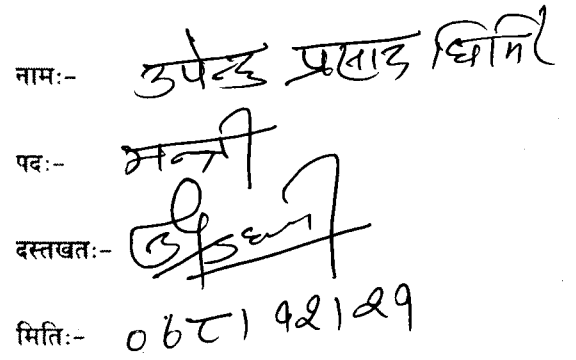 नामः- उपेन्द्र प्रसाद घिमिरे
पदः- मन्त्री
दस्तखतः-
मितिः- ०६८।१२।२१